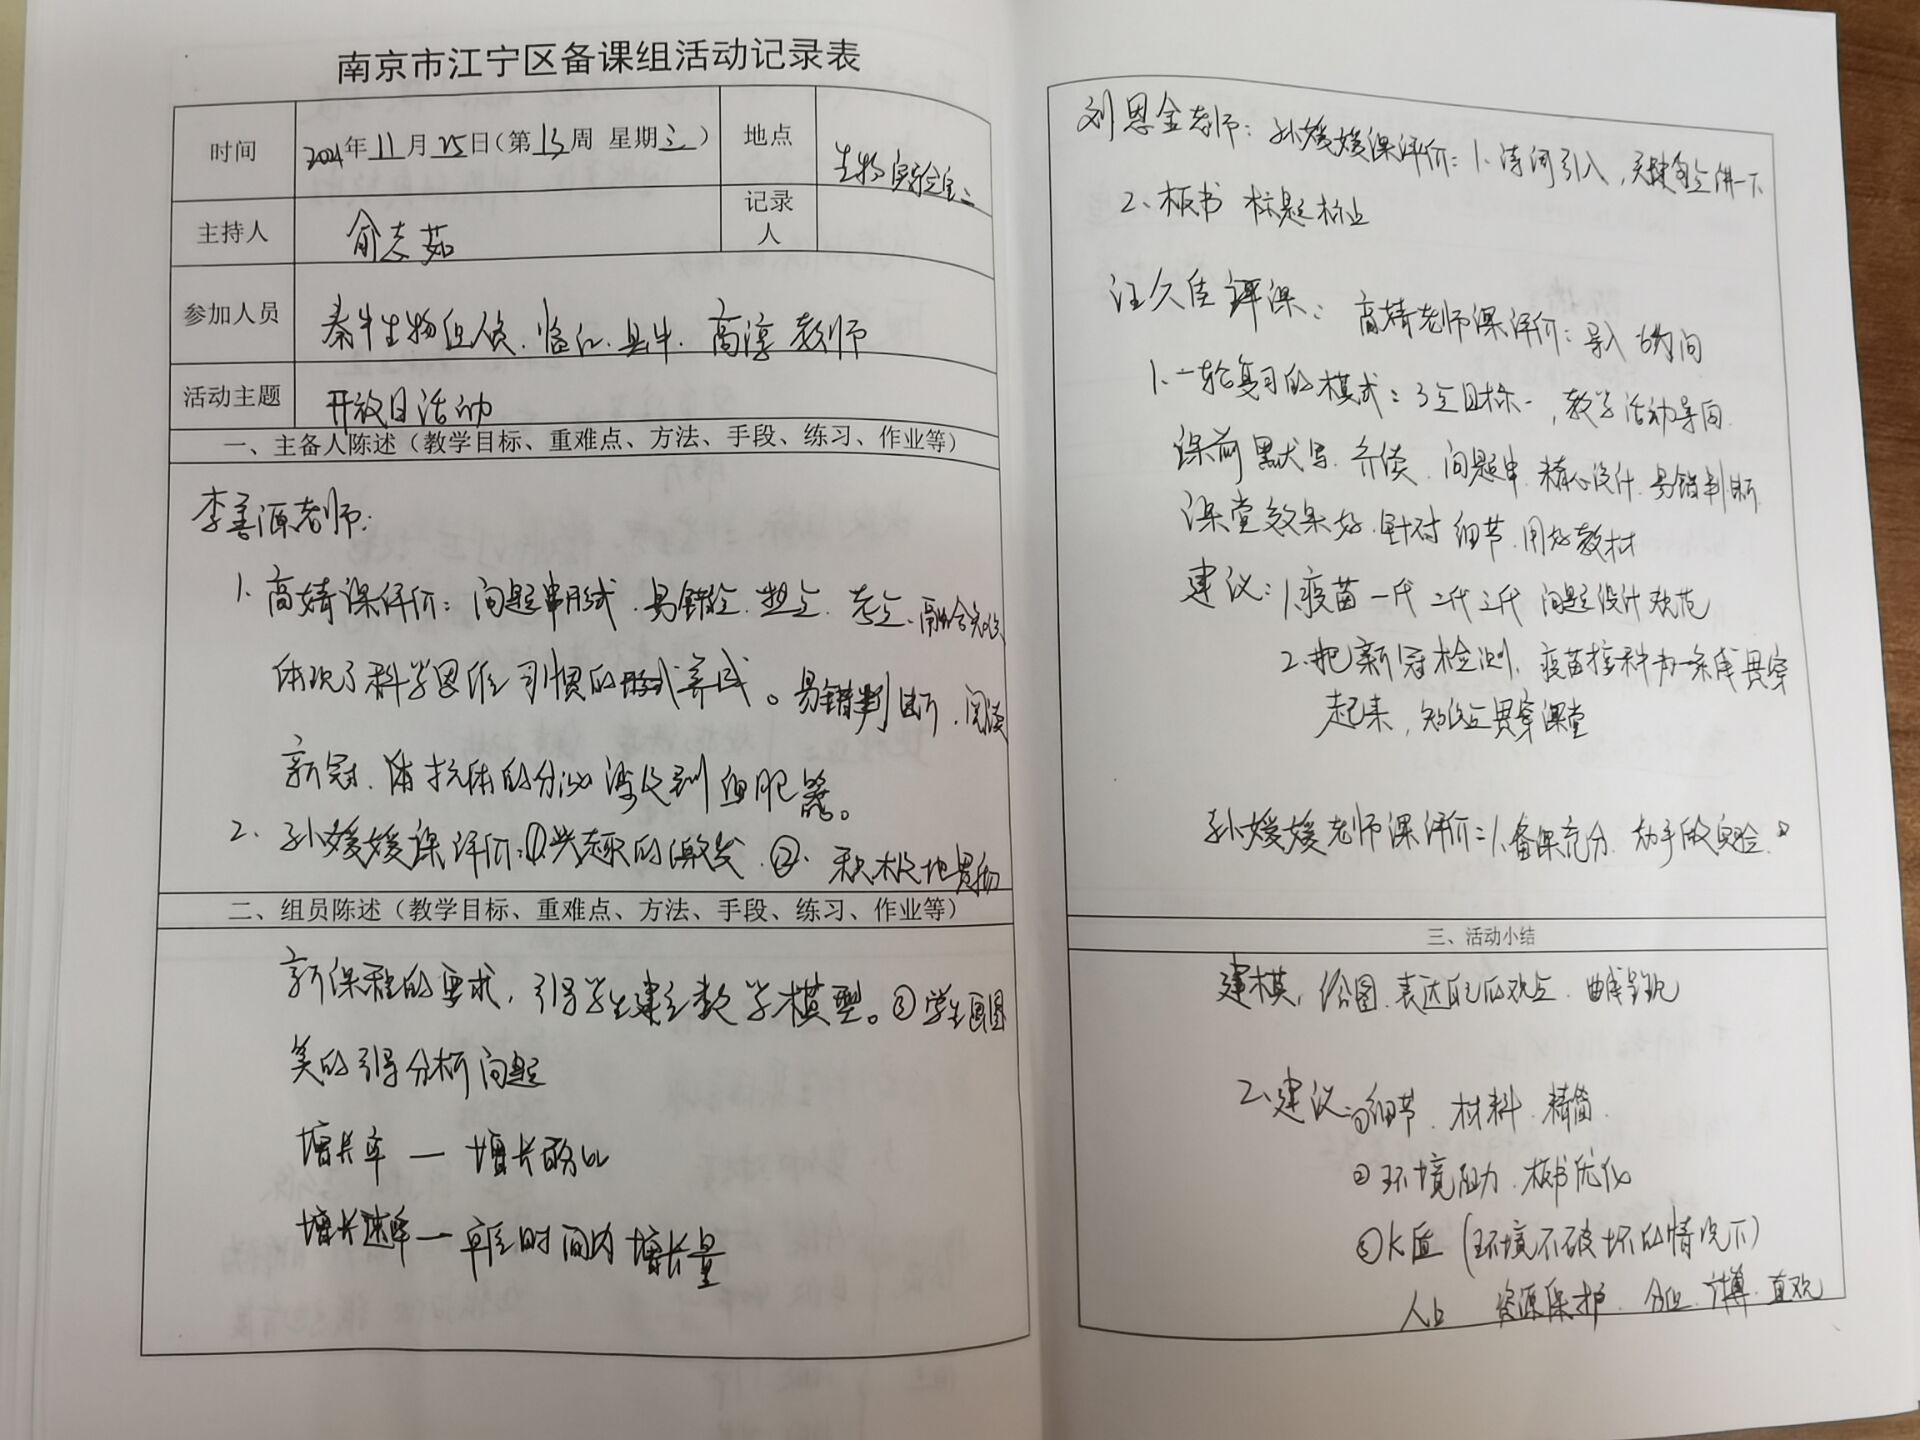 南京市江宁区备课组活动记录表
时间 2021年11月25日(第13周 星期三) 地点 生物实验室二
主持人 俞志茹 记录人
参加人员 秦中生物组人员、临江、县中、高淳教师
活动主题 开放日活动
一、主备人陈述（教学目标、重难点、方法、手段、练习、作业等）
李善源老师：
1. 高婧课评价：问题串形式、易错、考点、融合
体现了科学思维习惯的形式养成。易错判断、阅读
新冠、抗体的分泌涉及到细胞器。
2、孙媛媛课评价：①兴趣的激发、②、积极地
二、组员陈述（教学目标、重难点、方法、手段、练习、作业等）
新课程的要求，引导学生建立数学模型。③学生画图
美的引导分析问题
增长率 — 增长的
增长速率 — 单位时间内增长量
刘恩金老师：孙媛媛课评价：1、诗词引入，讲一下
2、板书 标题
汪久佳评课：高婧老师课评价：导入
1、一轮复习的模式：目标，教学活动导向
课前默写、齐读、问题串、精心设计、易错判断
课堂效果好、针对细节、用好教材
建议：1、疫苗一代二代三代 问题设计规范
2、把新冠检测、疫苗一条线贯穿
起来，知识点贯穿课堂
孙媛媛老师课评价：1、备课充分、动手做实验、
三、活动小结
建模，绘图、表达自己的观点、曲线
2、建议：①细节、材料、精简
②环境阻力、板书优化
③K值（环境不破坏的情况下）
人口 资源保护、直观